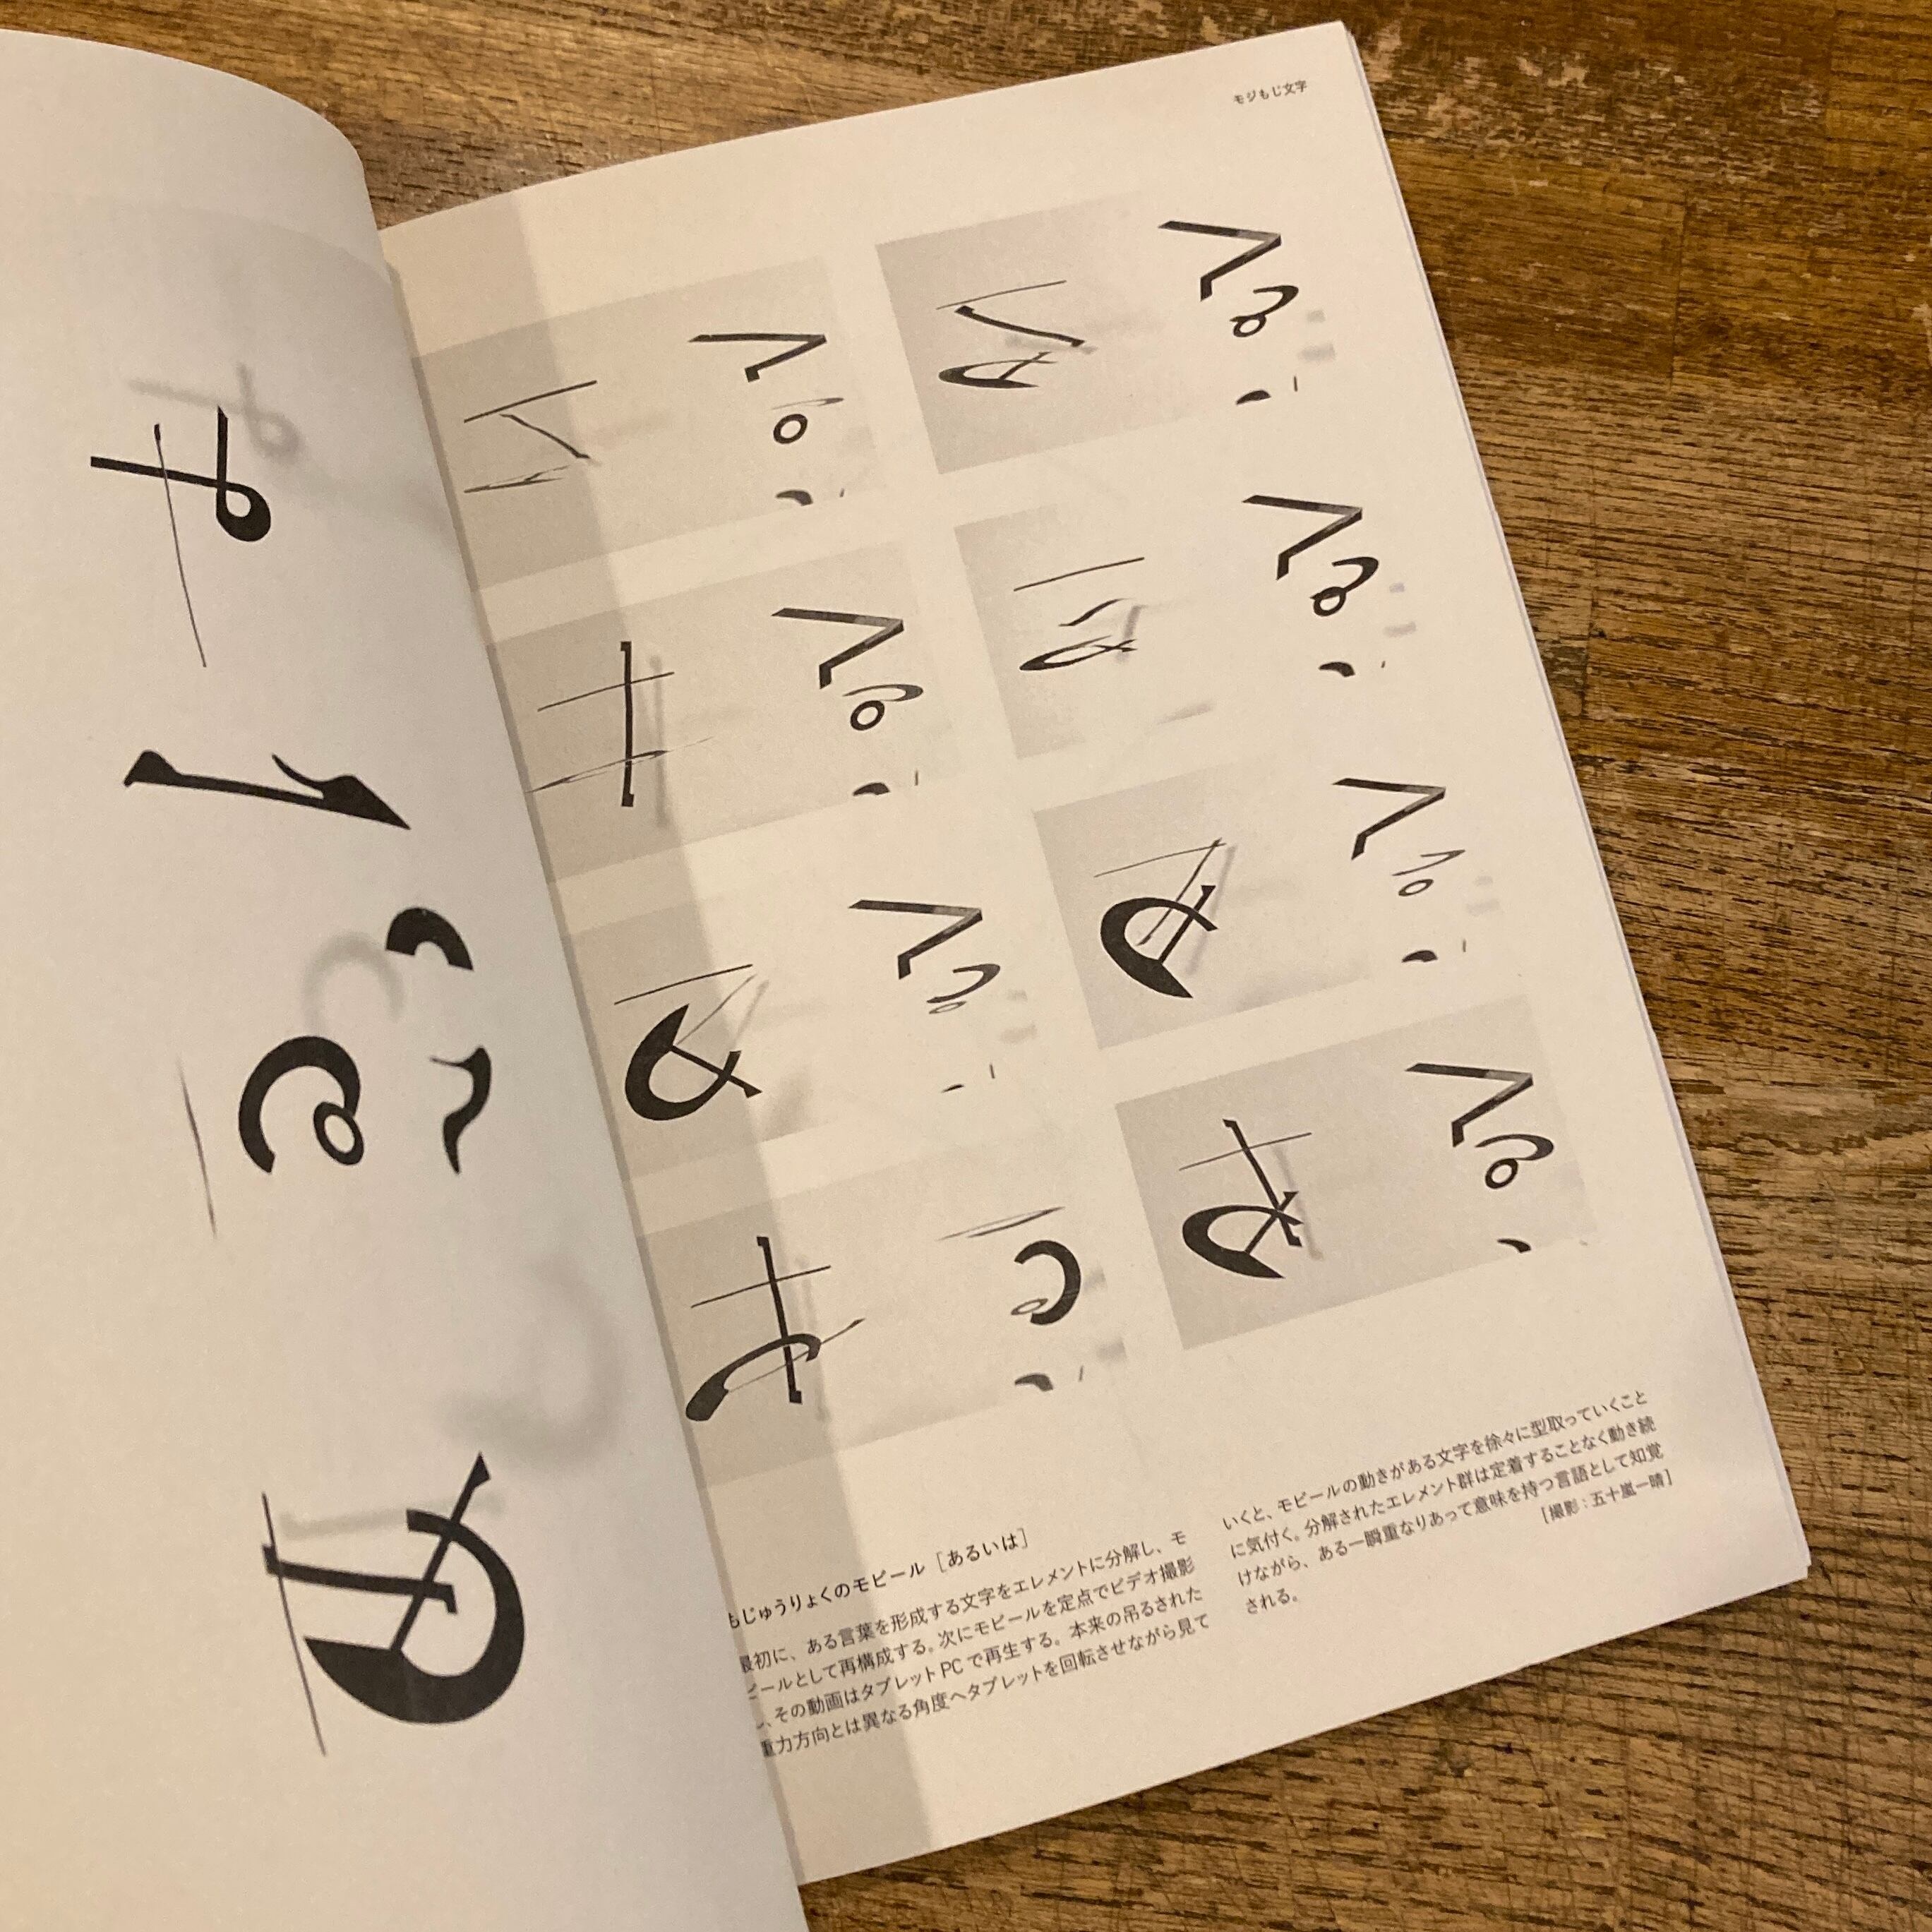 モジもじ文字
もじゅうりょくのモビール［あるいは］
最初に、ある言葉を形成する文字をエレメントに分解し、モ
ビールとして再構成する。次にモビールを定点でビデオ撮影
し、その動画はタブレットPCで再生する。本来の吊るされた
重力方向とは異なる角度へタブレットを回転させながら見て
いくと、モビールの動きがある文字を徐々に型取っていくこと
に気付く。分解されたエレメント群は定着することなく動き続
けながら、ある一瞬重なりあって意味を持つ言語として知覚
される。
［撮影：五十嵐一晴］